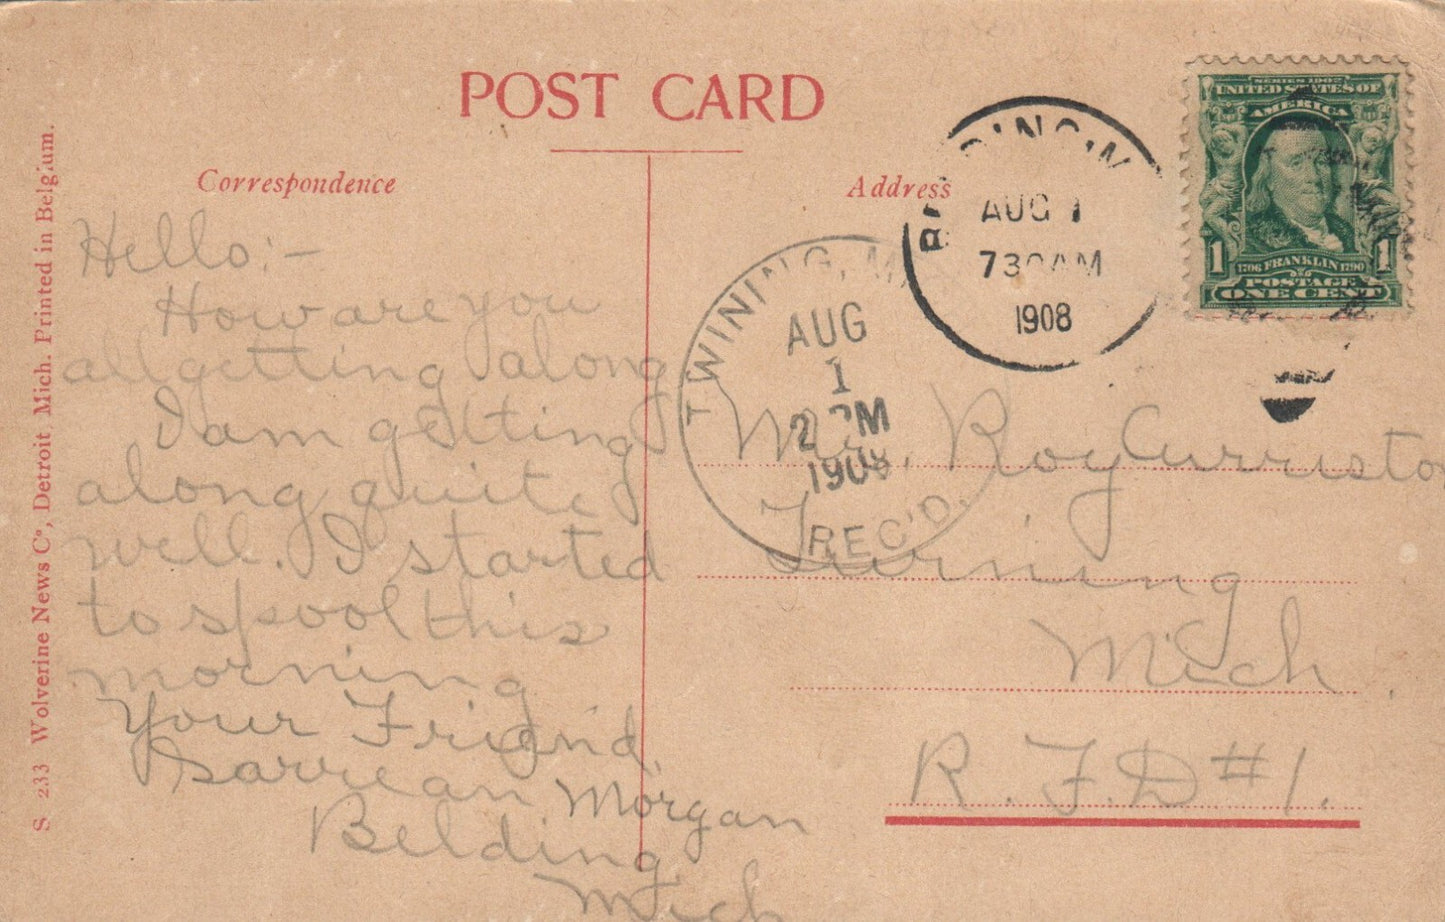 POST CARD
Correspondence
Address
S 233 Wolverine News Co, Detroit, Mich. Printed in Belgium.
SERIES 1902
UNITED STATES OF
AMERICA
1 1
1706 FRANKLIN 1790
POSTAGE
ONE CENT
AUG 1
730AM
1908
TWINING, M
AUG
1
2 PM
1908
REC'D.
Hello:-
How are you
all getting along
I am getting
along quite
well. I started
to spool this
morning
Your Friend,
Morgan
Belding
Mich
Mr. Roy
Mich.
R.F.D #1.